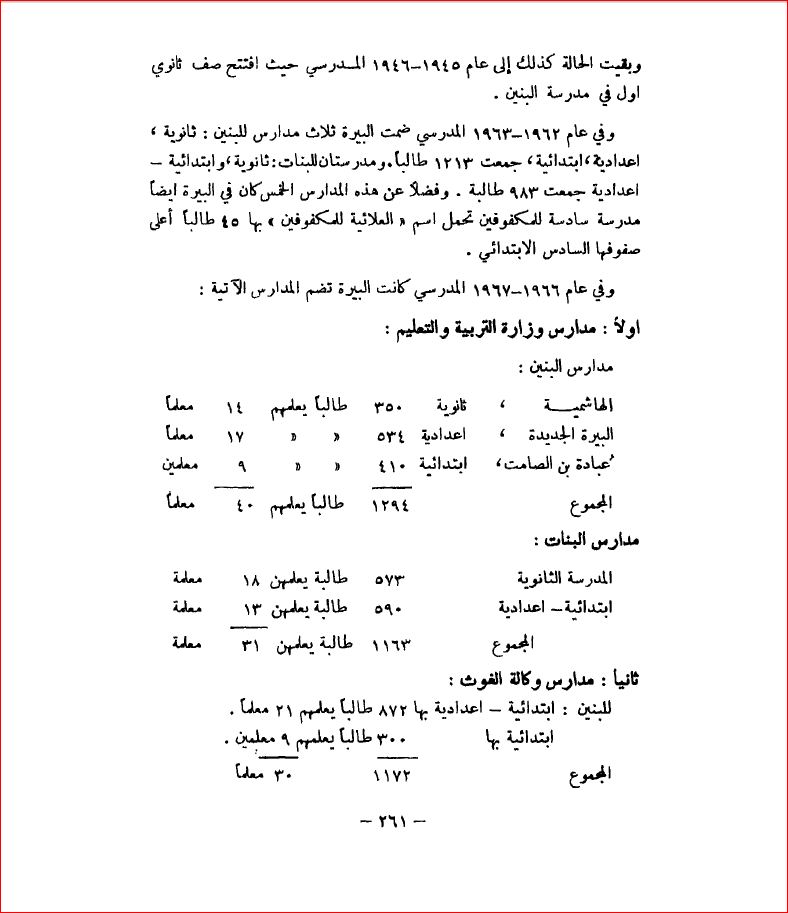 وبقيت الحالة كذلك إلى عام ١٩٤٥–١٩٤٦ المدرسي حيث افتتح صف ثانوي
اول في مدرسة البنين .
وفي عام ١٩٦٢–١٩٦٣ المدرسي ضمت البيرة ثلاث مدارس للبنين : ثانوية ،
اعدادية ، ابتدائية ، جمعت ١٢١٣ طالباً . ومدرستان للبنات : ثانوية ، وابتدائية –
اعدادية جمعت ٩٨٣ طالبة . وفضلاً عن هذه المدارس الخمس كان في البيرة ايضاً
مدرسة سادسة للمكفوفين تحمل اسم « العلائية للمكفوفين » بها ٤٥ طالباً أعلى
صفوفها السادس الابتدائي .
وفي عام ١٩٦٦–١٩٦٧ المدرسي كانت البيرة تضم المدارس الآتية :
اولاً : مدارس وزارة التربية والتعليم :
مدارس البنين :
الهاشميـــة ، ثانوية ٣٥٠ طالباً يعلمهم ١٤ معلماً
البيرة الجديدة ، اعدادية ٥٣٤ » » ١٧ معلماً
عُبادة بن الصامت، ابتدائية ٤١٠ » » ٩ معلمين
المجموع ١٢٩٤ طالباً يعلمهم ٤٠ معلماً
مدارس البنات :
المدرسة الثانوية ٥٧٣ طالبة يعلمهن ١٨ معلمة
ابتدائية – اعدادية ٥٩٠ طالبة يعلمهن ١٣ معلمة
المجموع ١١٦٣ طالبة يعلمهن ٣١ معلمة
ثانياً : مدارس وكالة الغوث :
للبنين : ابتدائية – اعدادية بها ٨٧٢ طالباً يعلمهم ٢١ معلماً .
ابتدائية بها ٣٠٠ طالباً يعلمهم ٩ معلمين .
المجموع ١١٧٢ ٣٠ معلماً
– ٢٦١ –